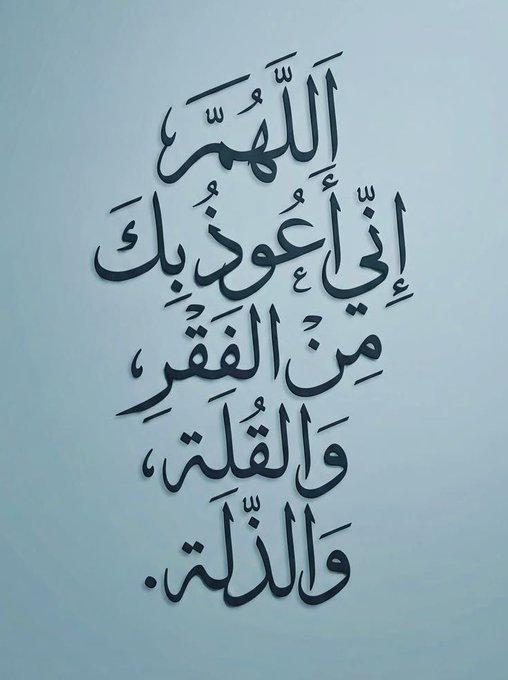 اَللَّهُمَّ،
إِنِّي أَعُوذُ بِكَ
مِنْ الفَقْرِ،
وَالقُلَة،
وَالذّلَة.